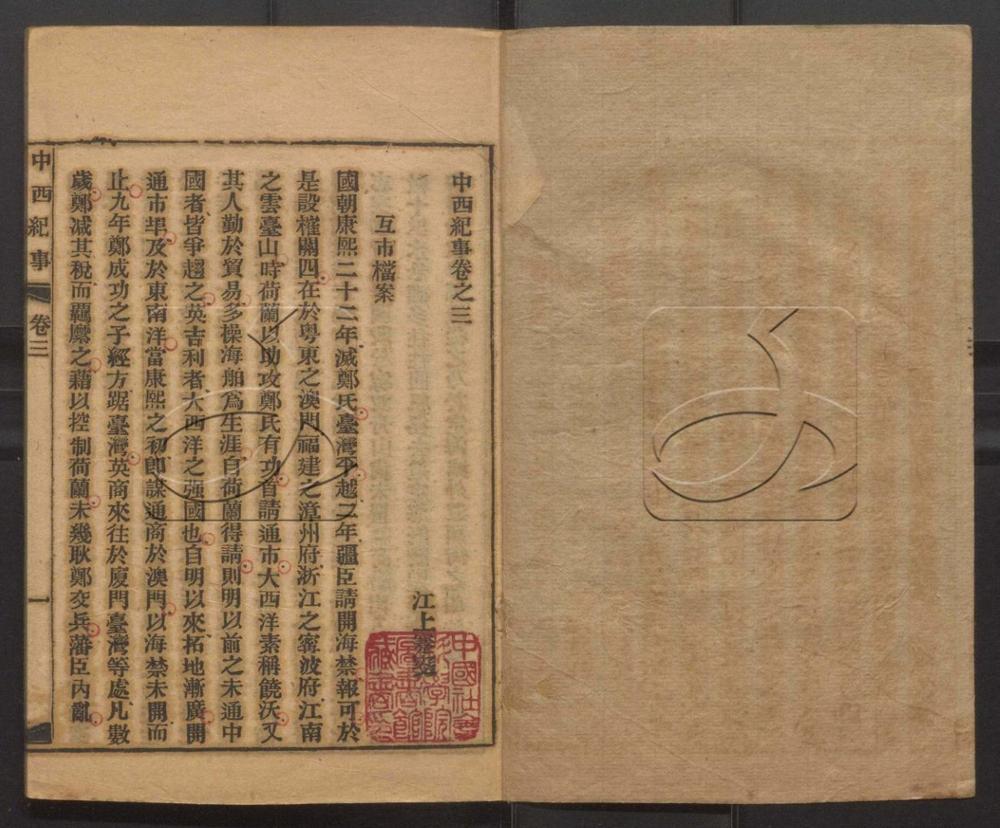 中西紀事卷之三
江上蹇叟
互市檔案
國朝康熙二十二年滅鄭氏臺灣平越二年疆臣請開海禁報可於
是設榷關四在於粵東之澳門福建之漳州府浙江之寧波府江南
之雲臺山時荷蘭以助攻鄭氏有功首請通市大西洋素稱饒沃又
其人勤於貿易多操海舶為生涯自荷蘭得請則明以前之未通中
國者皆爭趨之英吉利者大西洋之强國也自明以來拓地漸廣開
通市埠及於東南洋當康熙之初卽謀通商於澳門以海禁未開而
止九年鄭成功之子經方踞臺灣英商來往於廈門臺灣等處凡數
歲鄭減其稅而羈縻之藉以控制荷蘭未幾耿鄭交兵藩臣內亂
中西紀事
卷三
一